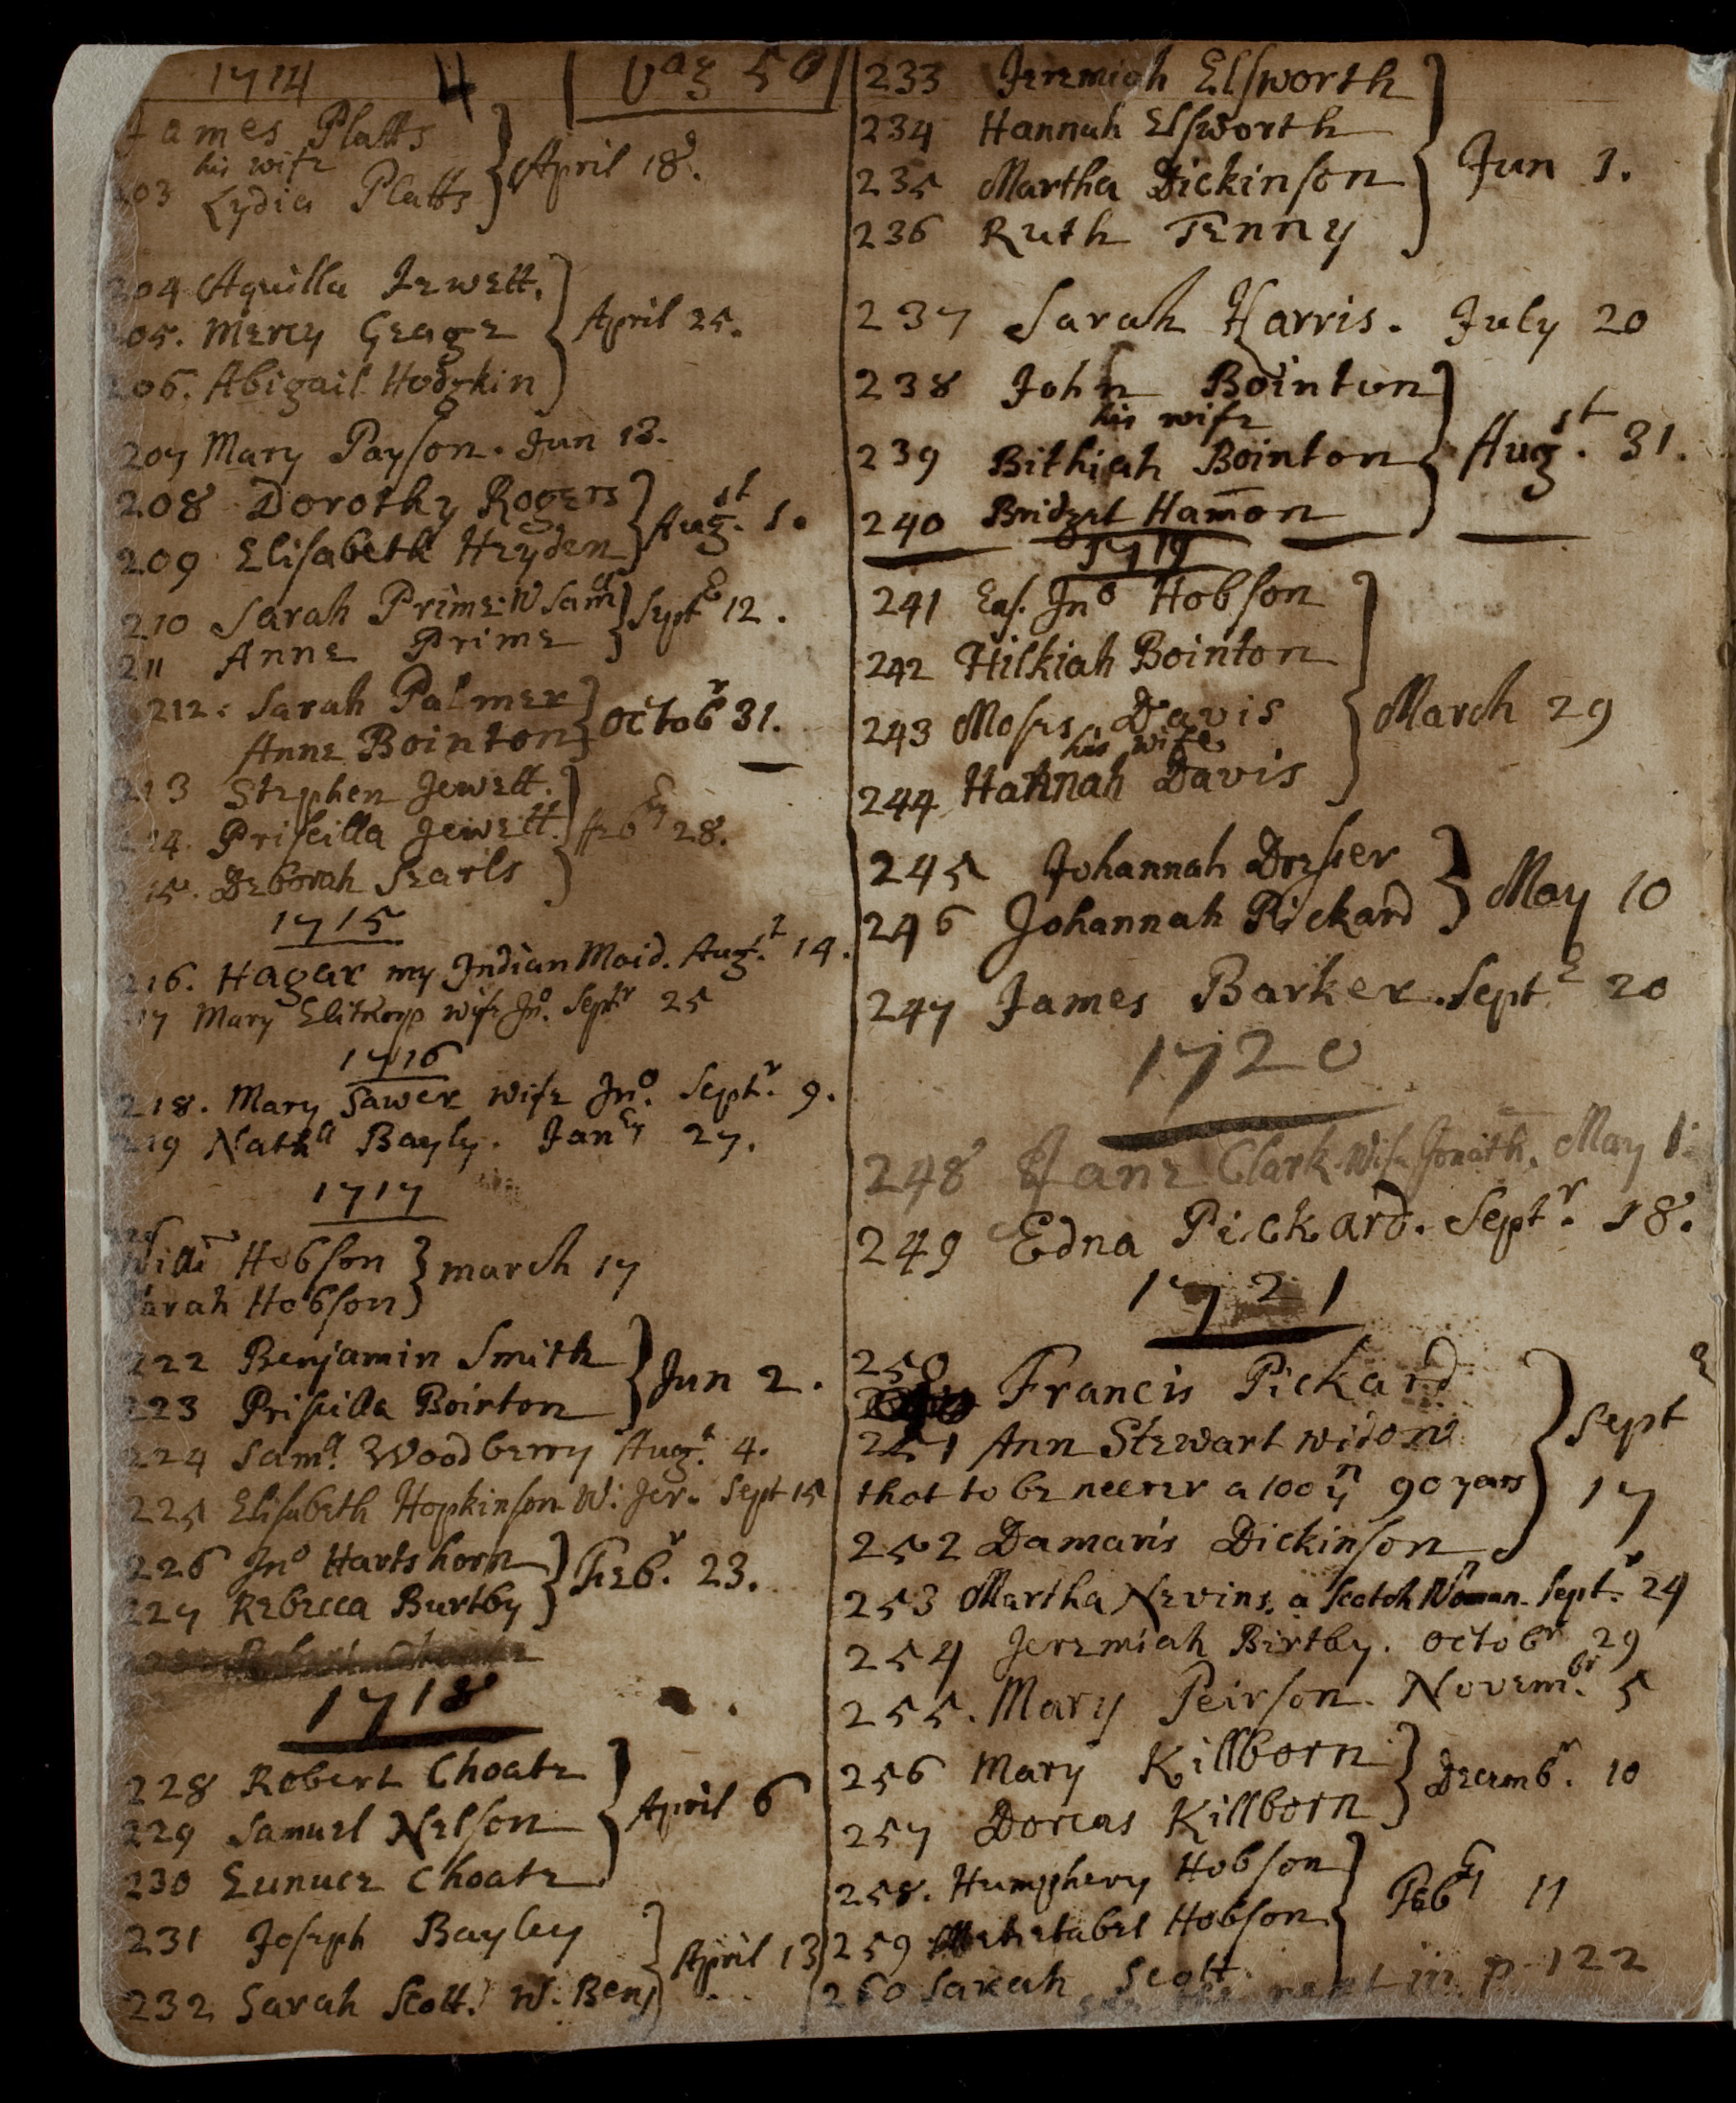 1714 4 pag 50
James Platts
his wife
203 Lydia Platts } April 18.
204 Aquilla Jewett.
205. Mercy Geage } April 25.
206. Abigail Hodgkin
207 Mary Payson. Jun 13.
208 Dorothy Rogers } Augst. 1.
209 Elisabeth Heyden
210 Sarah Prime: W Samll } Septe 12.
211 Anne Prime
212. Sarah Palmer } Octobr 31.
Anne Bointon
213 Stephen Jewett.
214. Priscilla Jewett. } Febry 28.
215. Deborah Searls
1715
216. Hagar my Indian Maid. Augt. 14.
217 Mary Elithorp wife Jno. Septr 25
1716
218. Mary Sawer wife Jno. Septr. 9.
219 Nathll Bayly. Janry 27.
1717
Willm Hobson } march 17
Sarah Hobson
222 Benjamin Smith } Jun 2.
223 Priscilla Bointon
224 Samll. Woodberry Augt. 4.
225 Elisabeth Hopkinson W: Jer. Sept 15
226 Jno Hartshorn } Febr. 23.
227 Rebecca Burtby
228 Robert Choate
1718
228 Robert Choate
229 Samuel Nelson } April 6
230 Eunuce Choate
231 Joseph Bayley } April 13
232 Sarah Scott. W. Benj
233 Jeremiah Elsworth
234 Hannah Elsworth
235 Martha Dickinson } Jun 1.
236 Ruth Tenny
237 Sarah Harris. July 20
238 John Bointon
his wife
239 Bithiah Bointon } Augst. 31.
240 Bridget Hamon
1719
241 Ens. Jno Hobson
242 Hilkiah Bointon
243 Moses Davis } March 29
his wife
244 Hannah Davis
245 Johannah Dresser } May 10
246 Johannah Pickard
247 James Barker. Septe 20
1720
248 Jane Clark Wife Jonath. May 1.
249 Edna Pickard. Septr. 18.
1721
250
Francis Pickard
251 Ann Stewart widow } Septe 17
that to be neerer a 100 yn 90 years
252 Damaris Dickinson
253 Martha Nevins. a Scotch Woman. Septr. 24
254 Jeremiah Birtby. Octobr 29
255. Mary Peirson. Novembr. 5
256 Mary Killborn } Decembr. 10
257 Dorcas Killborn
258. Humphery Hobson
259 Mehetabel Hobson } Febry 11
260 Sarah Scott.
see the next in p 122